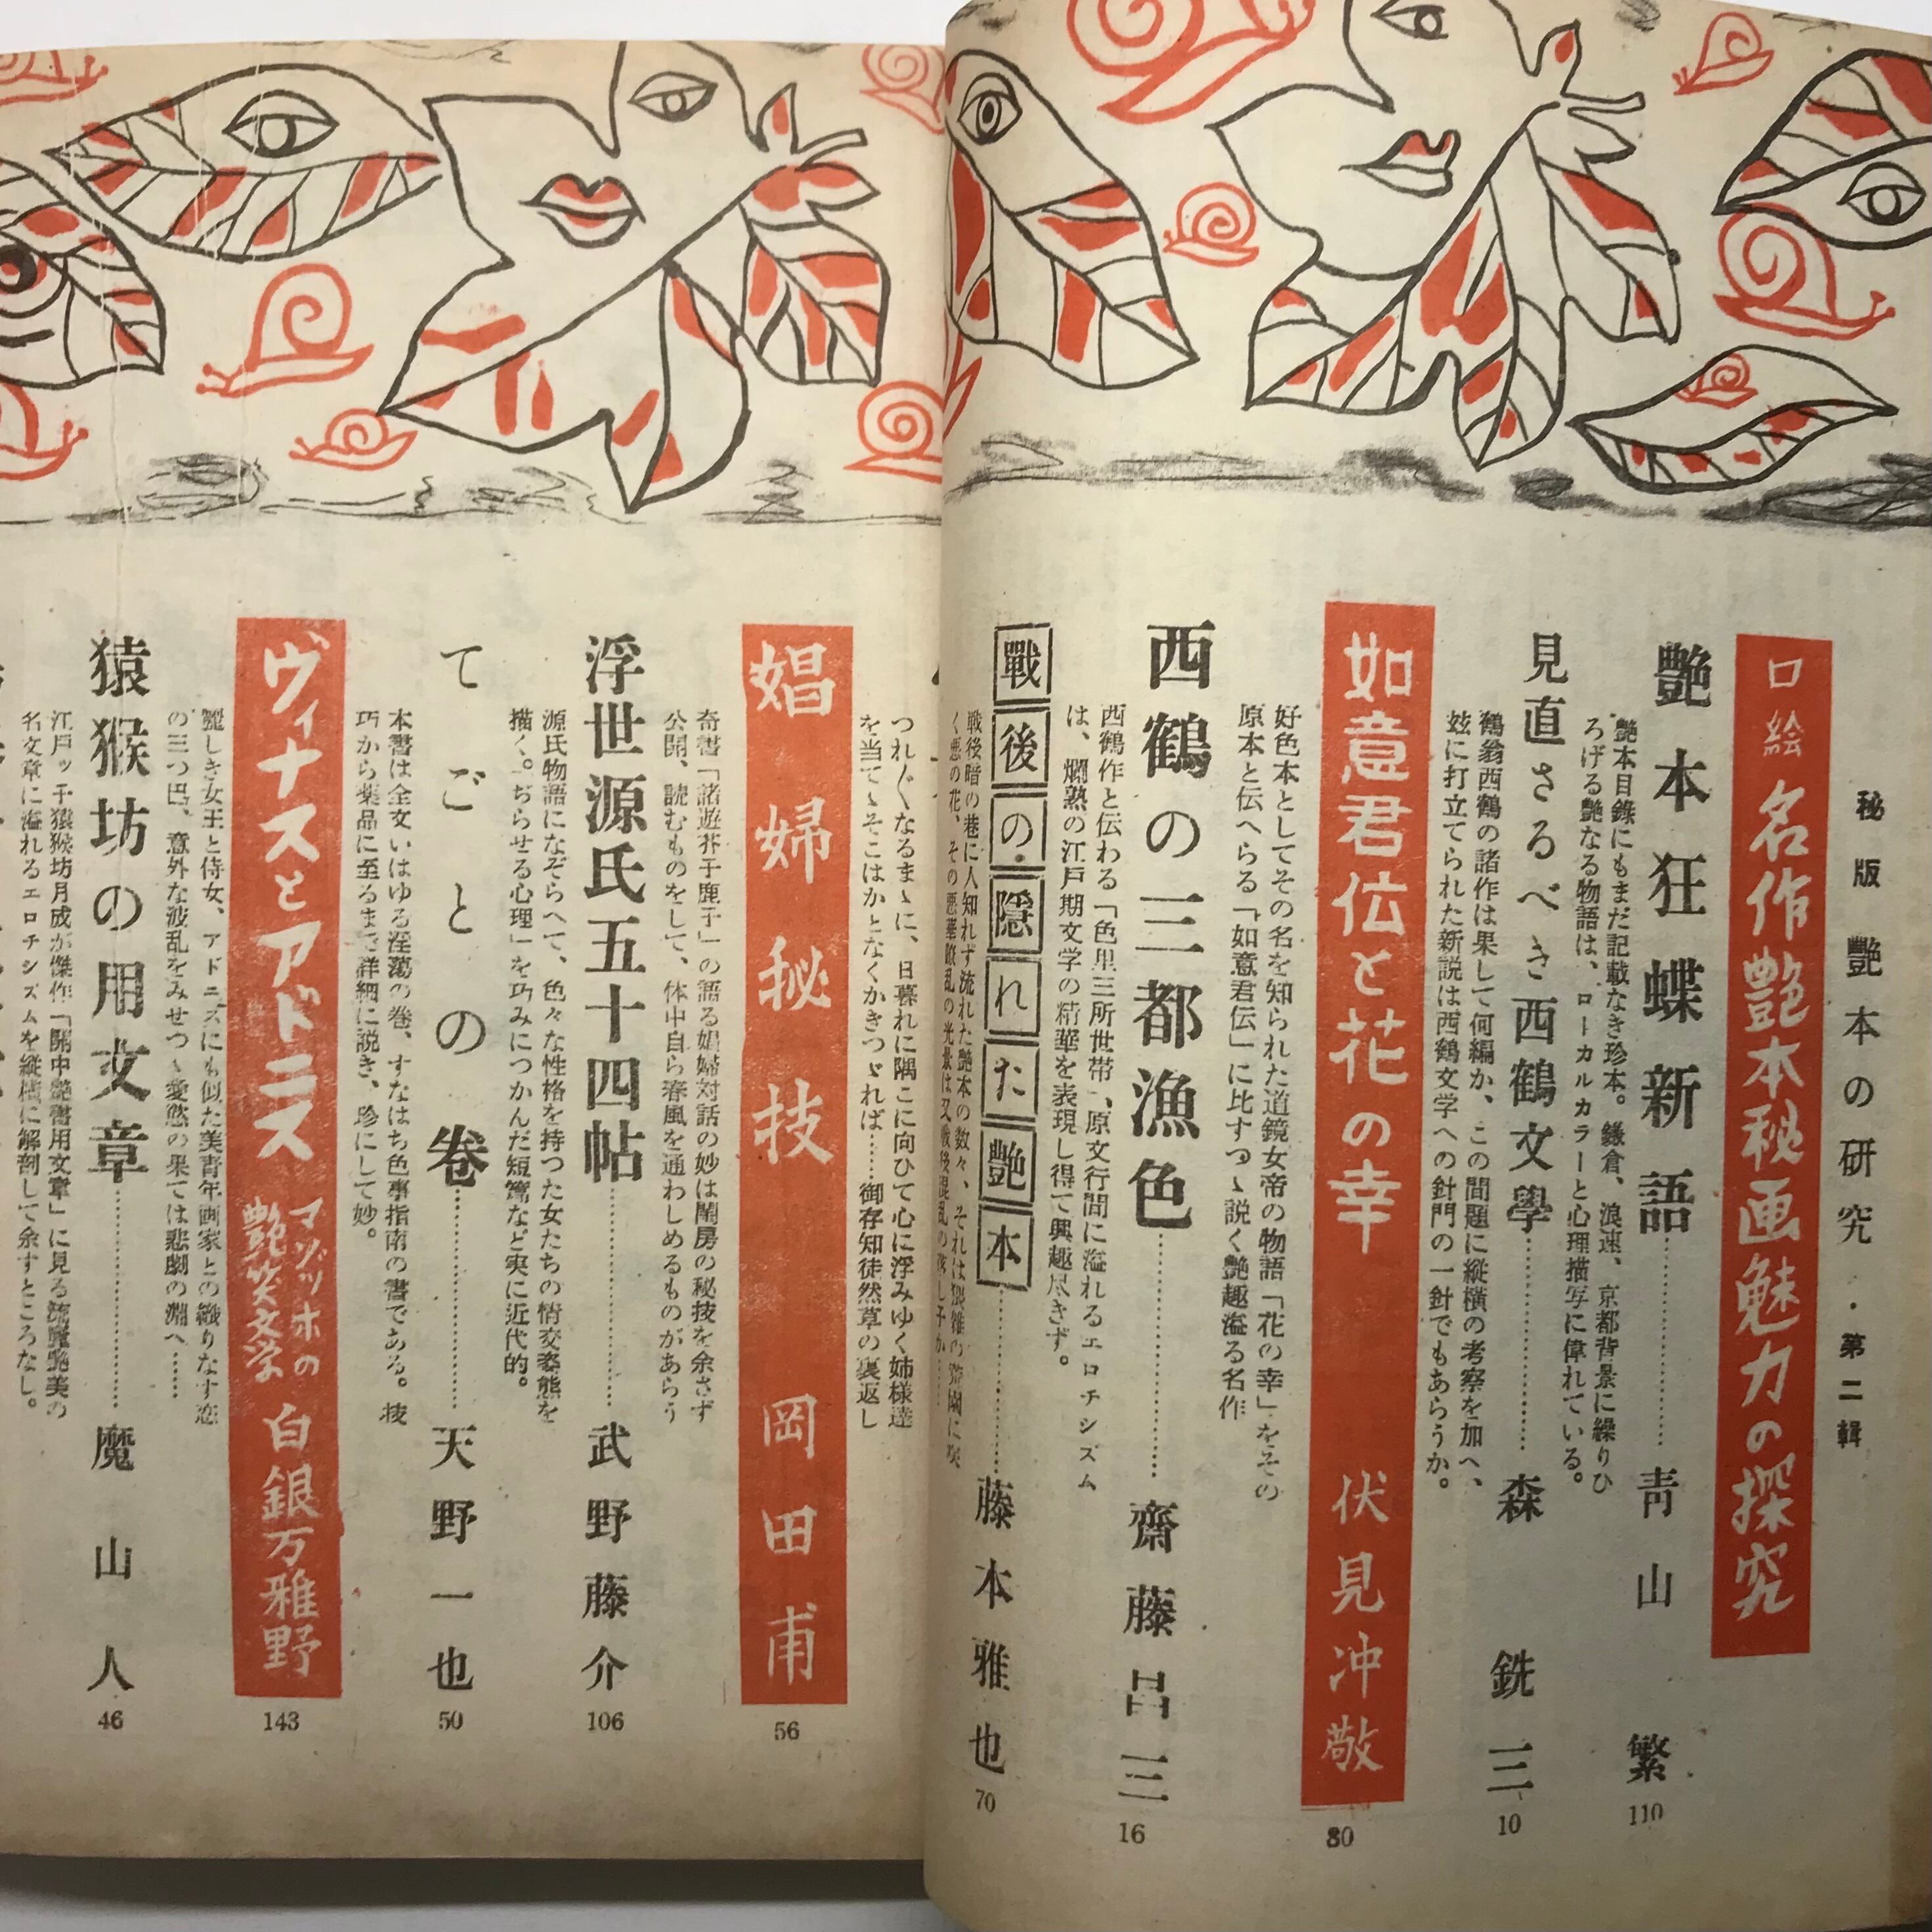 秘版艶本の研究・第二輯
口絵 名作艶本秘画魅力の探究
艶本狂蝶新語……青山繁 110
艶本目録にもまだ記載なき珍本。鎌倉、浪速、京都背景に繰りひ
ろげる艶なる物語は、ローカルカラーと心理描写に偉れている。
見直さるべき西鶴文學……森銑三 10
鶴翁西鶴の諸作は果して何編か、この問題に縦横の考察を加へ、
玆に打立てられた新説は西鶴文学への針門の一針でもあらうか。
如意君伝と花の幸 伏見冲敬 80
好色本としてその名を知られた道鏡女帝の物語「花の幸」をその
原本と伝へらる「如意君伝」に比すつゝ説く艶趣溢る名作
西鶴の三都漁色……齋藤昌三 16
西鶴作と伝わる「色里三所世帯」、原文行間に溢れるエロチシズム
は、爛熟の江戸期文学の精華を表現し得て興趣尽きず。
戰後の隠れた艶本……藤本雅也 70
戦後暗の巷に人知れず流れた艶本の数々、それは猥雑の
く悪の花、その悪華
つれ〴〵なるまゝに、日暮れに隅こに向ひて心に浮みゆく姉様達
を当てゝそこはかとなくかきつゞれば……御存知徒然草の裏返し
娼婦秘技 岡田甫 56
奇書「諸遊芥子鹿子」の語る娼婦対話の妙は閨房の秘技を余さず
公開、読むものをして、体中自ら春風を通わしめるものがあらう
浮世源氏五十四帖……武野藤介 106
源氏物語になぞらへて、色々な性格を持つた女たちの情交姿態を
描く。「ぢらせる心理」を巧みにつかんだ短篇など実に近代的。
てごとの巻……天野一也 50
本書は全文いはゆる淫蕩の巻、すなはち色事指南の書である。技
巧から薬品に至るまで詳細に説き、珍にして妙。
ヴィナスとアドニス マゾッホの艶笑文学 白銀万雅野 143
麗しき女王と侍女、アドニスにも似た美青年画家との織りなす恋
の三つ巴、意外な波乱をみせつゝ愛慾の果ては悲劇の淵へ……
猿猴坊の用文章……魔山人 46
江戸ッ子猿猴坊月成が傑作「開中艶書用文章」に見る流麗艶美の
名文章に溢れるエロチシズムを縦横に解剖して余すところなし。